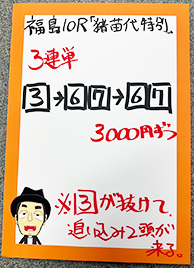 福島10R「猪苗代特別」
3連単
3→67→67
3000円ずつ
※3が抜けて、
追い込み2頭が
来る。